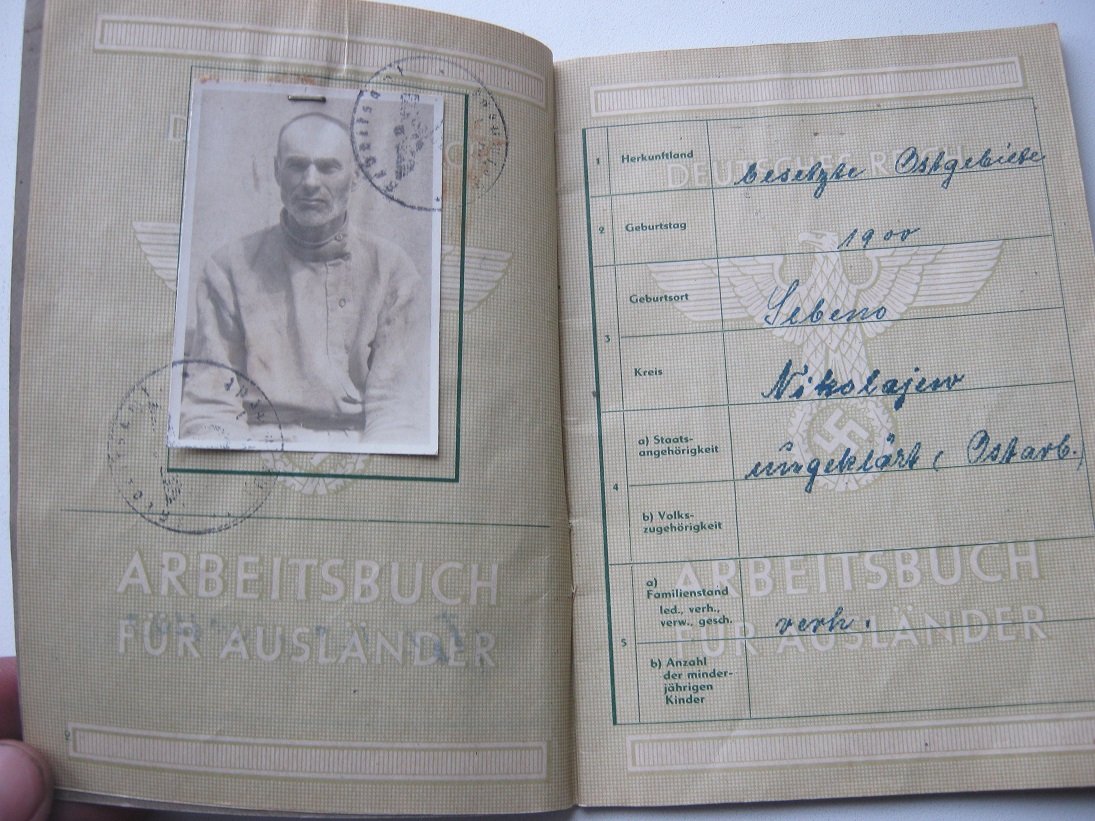 ARBEITSBUCH
FÜR AUSLÄNDER
2
DEUTSCHES REICH
1 Herkunftland besetzte Ostgebiete
2 Geburtstag 1900
3 Geburtsort
Kreis Nikolajew
4 a) Staats-
angehörigkeit ungeklärt (Ostarb.)
b) Volks-
zugehörigkeit
5 a)
Familienstand
led., verh.,
verw., gesch. verh.
b) Anzahl
der minder-
jährigen
Kinder
ARBEITSBUCH
FÜR AUSLÄNDER